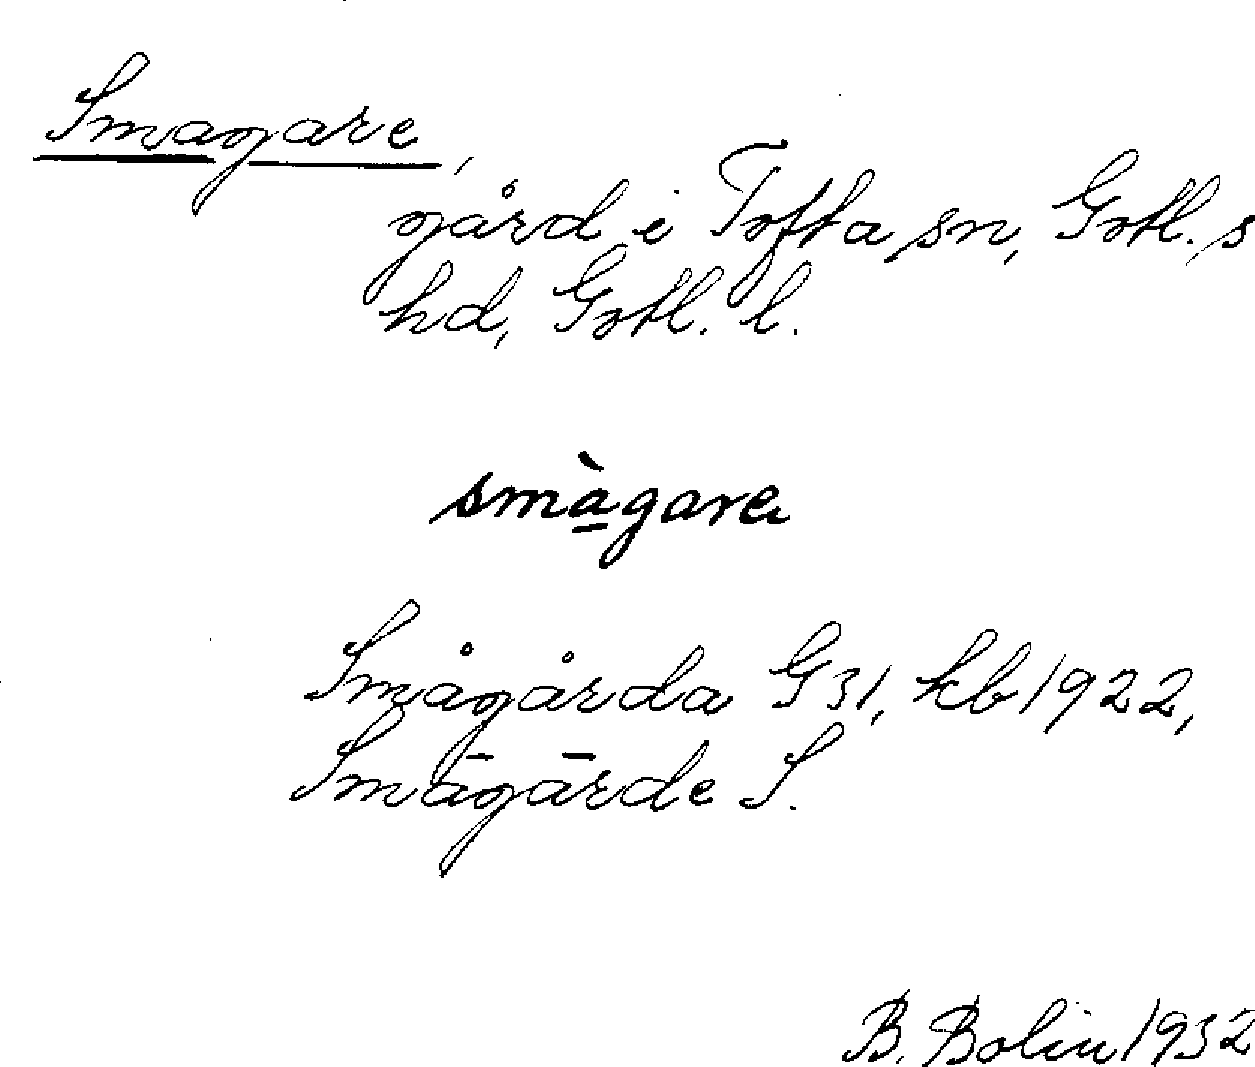 Smagare,
gård i Tofta sn, Gotl. s
hd, Gotl. l.
smàgare
Smågårda G 31, kb 1922,
Smāgārde S.
B. Bolin 1932